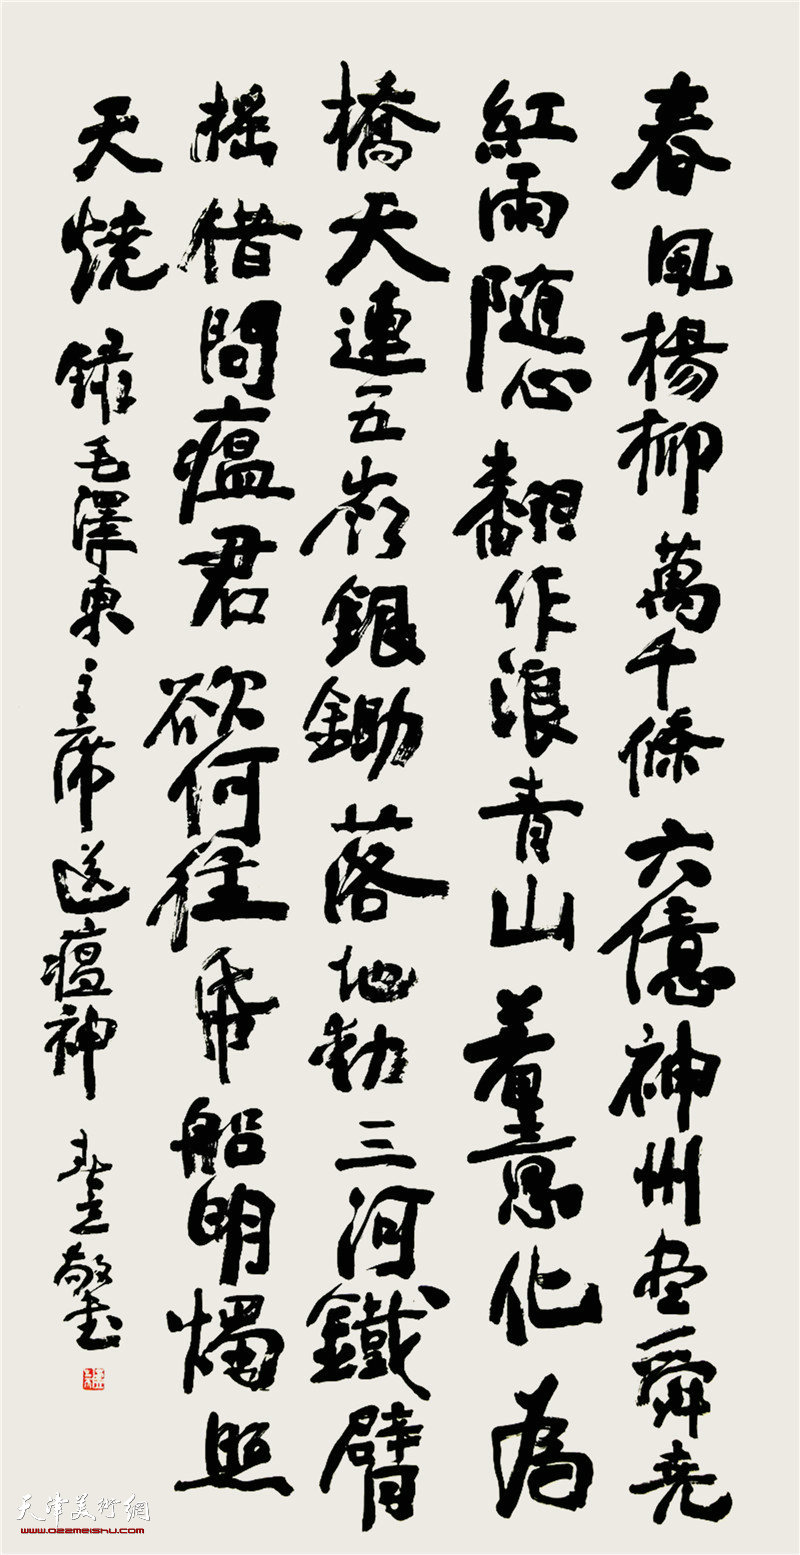 春風楊柳萬千條六億神州盡舜堯
紅雨随心翻作浪青山着意化為
橋天連五嶺銀鋤落地動三河鐵臂
摇借問瘟君欲何往帋船明燭照
天燒 錄毛澤東主席送瘟神 敬書
天津美術網
www.022meishu.com